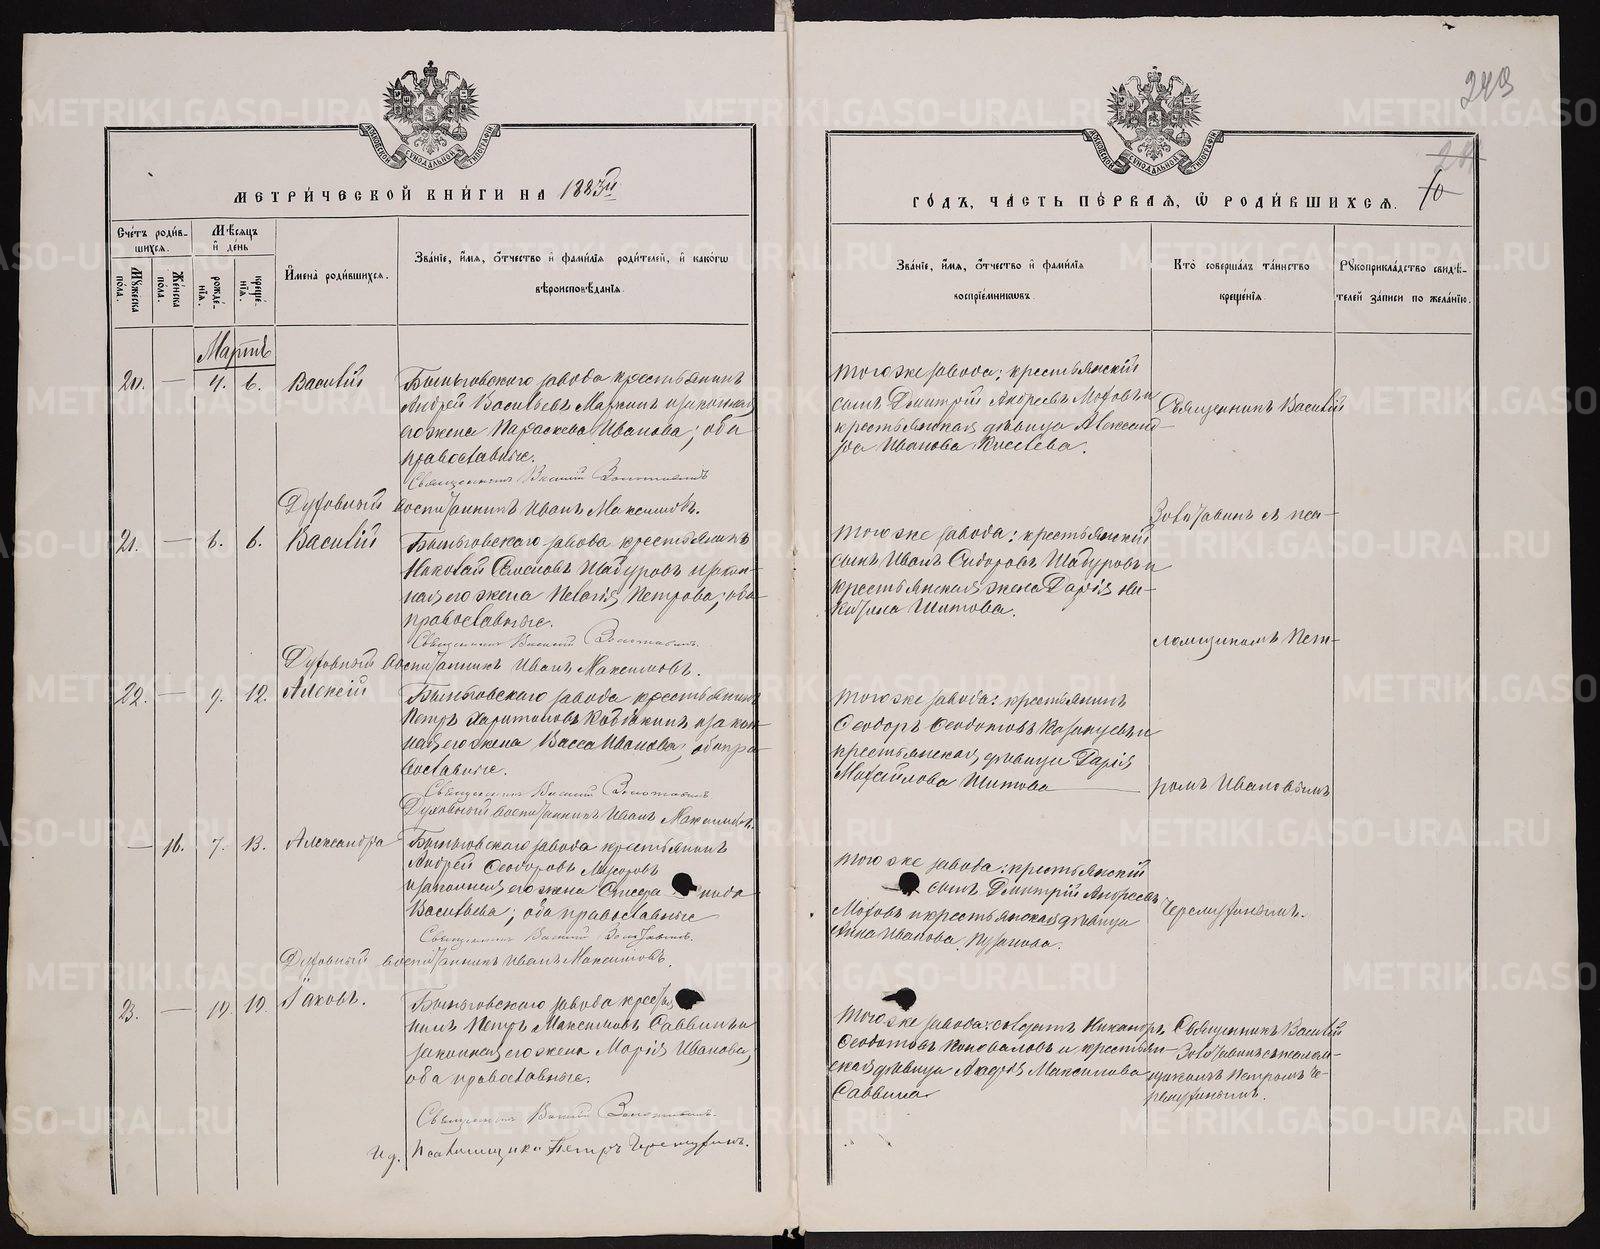 243
24
10
МЕТРИ́ЧЕСКОЙ КНИ́ГИ НА 1883й
ГО́ДЪ, ЧА́СТЬ ПЕ́РВАЯ, Ѡ РОДИ́ВШИХСЯ.
МОСКОВСКОЙ СѴНОДАЛЬНОЙ ТИПОГРАФІИ
МОСКОВСКОЙ СѴНОДАЛЬНОЙ ТИПОГРАФІИ
Сче́тъ роди́в-
шихся.
Му́жеска пола.
Же́нска пола.
Мѣ́сяцъ
и҆ де́нь
рожде́-
нїя.
креще́-
нїя.
И҆мена̀ роди́вшихся.
Зва́нїе, и҆́мя, ѻ҆́тчество и҆ фами́лїя роди́телей, и҆ како́гѡ
вѣроисповѣ́данїя.
Зва́нїе, и҆́мя, ѻ҆́тчество и҆ фами́лїя
воспрїе́мникѡвъ.
Кто̀ соверша́лъ та́инство
креще́нїя.
Рꙋкоприкла́дство свидѣ́-
телей за́писи по жела́нїю.
Мартъ
20. — 4. 6. Василій
Быньговскаго завода крестьянинъ
Андрей Васильевъ Маркинъ и законная
его жена Параскева Иванова; оба
православные.
Священникъ Василій Золотавинъ
Духовный воспитанникъ Иванъ Максимовъ.
Того же завода: крестьянскій
сынъ Дмитрій Андреевъ Моховъ и
крестьянская дѣвица Александ-
ра Иванова Киселева.
Священникъ Василій
21. — 6. 6. Василій
Быньговскаго завода крестьянинъ
Николай Семеновъ Шадуровъ и закон-
ная его жена Пелагія Петрова; оба
православные.
Священникъ Василій Золотавинъ.
Духовный воспитанникъ Иванъ Максимовъ.
Того же завода: крестьянскій
сынъ Иванъ Сидоровъ Шадуровъ и
крестьянская жена Дарія Ни-
Шитова.
Золотавинъ съ пса-
ломщикомъ Пет-
22. — 9. 12. Алексій
Быньговскаго завода крестьянинъ
Петръ Харитоновъ и закон-
ная его жена Васса Иванова, оба пра-
вославные.
Священникъ Василій Золотавинъ
Духовный воспитанникъ Иванъ Максимовъ.
Того же завода: крестьянинъ
Ѳеодоръ Ѳеодотовъ и
крестьянская дѣвица Дарія
Михайлова Шитова
ромъ Ивановымъ
— 16. 7. 13. Александра
Быньговскаго завода крестьянинъ
Андрей Ѳеодоровъ
и законная его жена
Васильева; оба православные
Священникъ Василій Золотавинъ.
Духовный воспитанникъ Иванъ Максимовъ.
Того же завода: крестьянскій
сынъ Дмитрій Андреевъ
Моховъ и крестьянская дѣвица
Анна Иванова
Черемухинымъ.
23. — 19. 19. Іаковъ.
Быньговскаго завода кресть
нинъ Петръ Максимовъ Саввинъ и
законная его жена Марія Иванова;
оба православные.
Священникъ Василій Золотавинъ.
И. д. Псаломщика Петръ Черемухинъ.
Того же завода: солдатъ Никаноръ
Ѳеодотовъ Коноваловъ и крестьян-
ская дѣвица Максимова
Саввина
Священникъ Василій
Золотавинъ съ псалом-
щикомъ Петромъ Че-
ремухинымъ.
METRIKI.GASO-URAL.RU